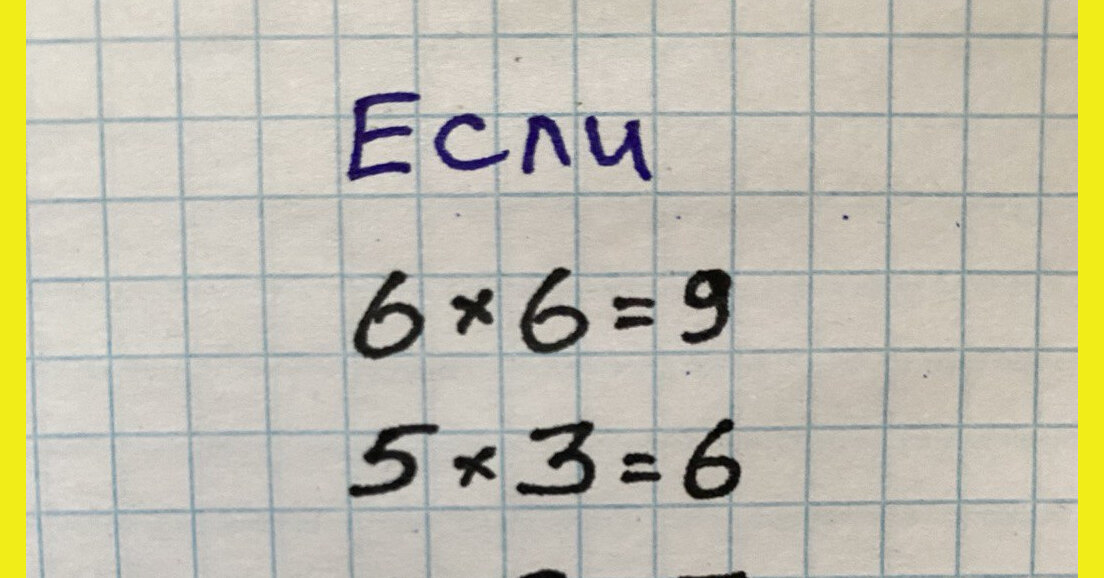 Если
6 × 6 = 9
5 × 3 = 6